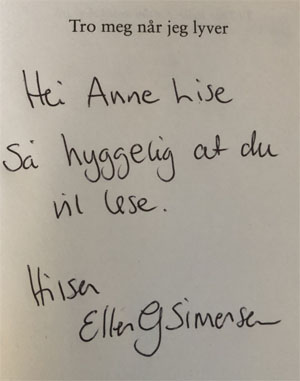 Tro meg når jeg lyver
Hei Anne Lise
Så hyggelig at du
vil lese.
Hilsen
Ellen G Simensen